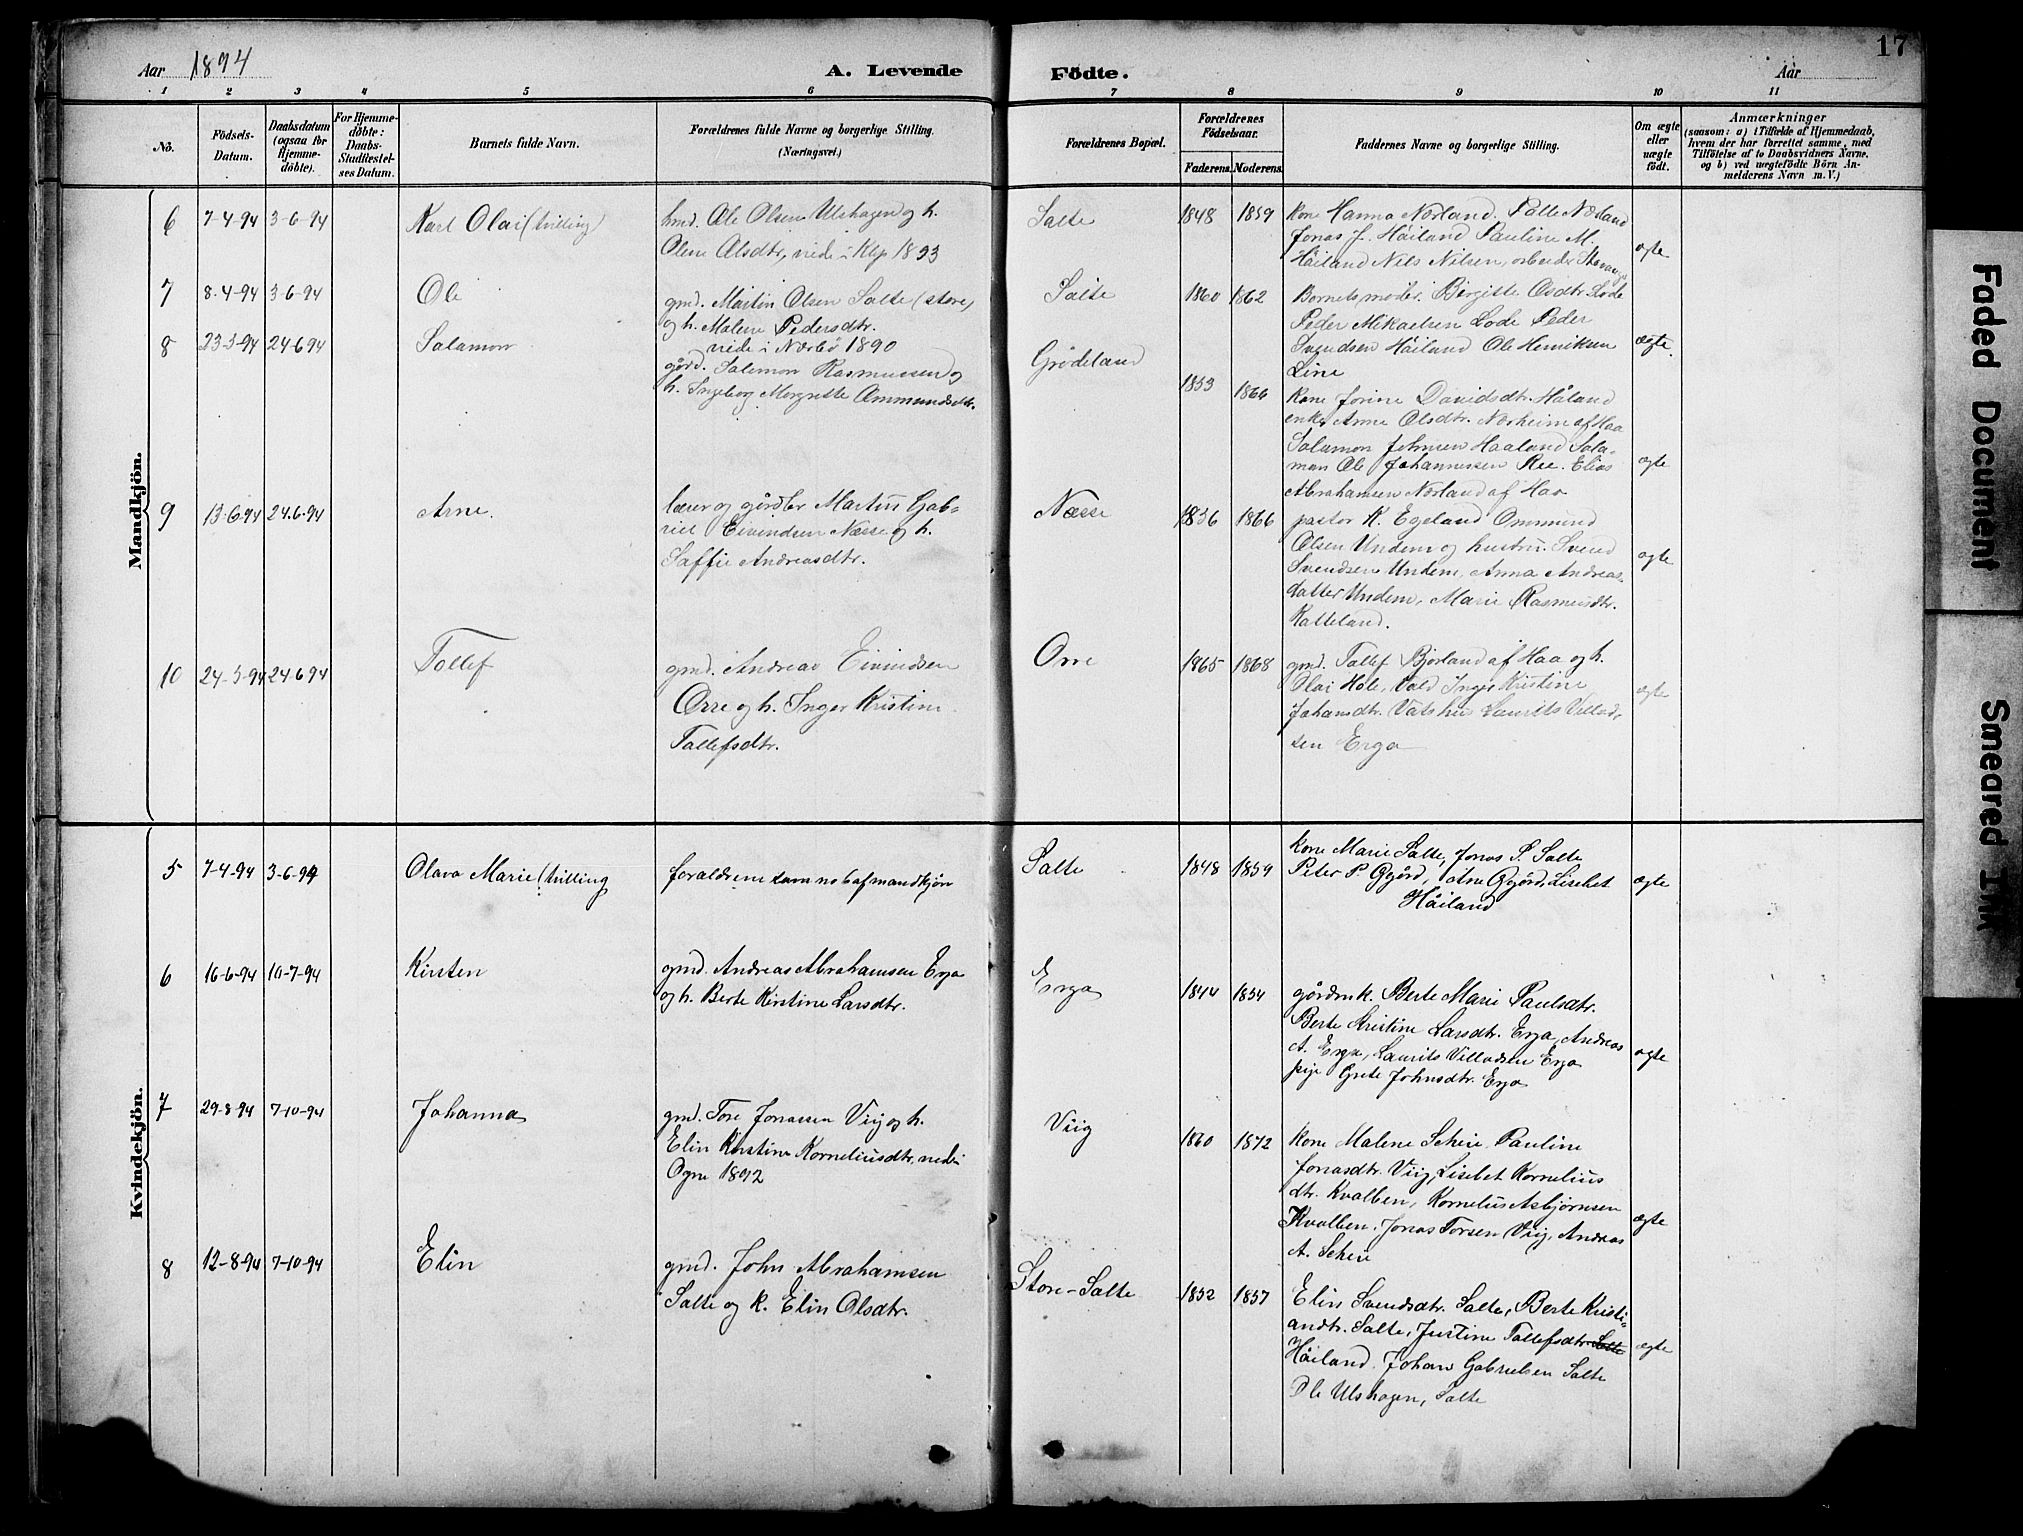 Aar 1894
A. Levende Födte.
17
Aar
1 2 3 4 5 6 7 8 9 10 11
No.
Födsels-Datum.
Daabsdatum (ogsaa for Hjemme-döbte).
For Hjemme-döbte: Daabs-Stadfæstel-ses Datum.
Barnets fulde Navn.
Forældrenes fulde Navne og borgerlige Stilling.
(Næringsvei.)
Forældrenes Bopæl.
Forældrenes Födselsaar.
Faderens. Moderens.
Faddernes Navne og borgerlige Stilling.
Om ægte eller uægte födt.
Anmærkninger
(saasom: a) i Tilfælde af Hjemmedaab,
hvem der har forrettet samme, med
Tilföielse af to Daabsvidners Navne,
og b) ved uægtefödte Börn An-
melderens Navn m. V.)
Mandkjön.
6 7-4-94 3-6-94 Karl Olai (tvilling)
hmd. Ole Olsen Ulshagen og h.
Olene Olsdtr, viede i Klep 1893
Salte 1848 1859
kone Hanna Nærland. Salle Nærland
Jonas J. Håiland Pauline M.
Håiland Nils Nilsen, arbeider Stavanger
ægte
7 8-4-94 3-6-94 Ole
gmd. Martin Olsen Salte (store)
og h. Malene Pedersdtr.
viede i Nærbö 1890
Salte 1860 1862
Bornets moder. Birgitte Osdtr. Lode
Peder Mikaelsen Lode Peder
Svendsen Håiland Ole Henriksen
Line
ægte.
8 23-5-94 24-6-94 Salamon
gård. Salemon Rasmussen og
h. Ingeborg Margrette Ommundsdtr.
Grødeland 1853 1866
kone Jorine Davidsdtr. Håland
enke Anne Olsdtr. Nærheim af Haa
Salamon Johnsen Haaland Sala-
mon Ole Johannessen Ree. Elias
Abrahamsen Nærland af Haa
ægte
9 13-6-94 24-6-94 Arne.
lærer og gårdbr Martin Gab-
riel Eivindsen Næsse og h.
Saffie Andreasdtr.
Næsse 1836 1866
pastor K. Egeland Ommund
Olsen Undem og hustru. Svend
Svendsen Undem, Anna Andreas-
datter Undem, Marie Rasmusdtr.
Kalleland.
ægte
10 24-5-94 24-6-94 Tollef
gmd. Andreas Eivindsen
Orre og h. Inger Kristine
Tollefsdtr.
Orre 1865 1868
gmd. Tollef Bjorland af Haa og h.
Olai Hole, Vold Inger Kristine
Johansdtr. Vatshus Laurits Villad-
sen Erga
ægte
Kvindekjön.
5 7-4-94 3-6-94 Olava Marie (tvilling
forældrene som no 6 af mandkjön
Salte 1848 1859
kone Marie Salte, Jonas P. Salte
Peter P. Øgård, Ane Øgård, Lisebet
Håiland
ægte
6 16-6-94 10-7-94 Kirsten
gmd. Andreas Abrahamsen Erga
og h. Berte Kirstine Larsdtr.
Erga 1844 1854
gårdmk. Berte Marie Paulsdtr.
Berte Kristine Larsdtr. Erga, Andreas
A. Erga, Laurits Villadsen Erga
pige Grete Johnsdtr. Erga
ægte
7 29-8-94 7-10-94 Johanna
gmd. Tore Jonassen Viig og h.
Elin Kirstine Korneliusdtr, viede i
Ogne 1892
Viig 1860 1872
kone Malene Scheie, Pauline
Jonasdtr. Viig, Lisebet Kornelius
dtr. Kvalben, Kornelius Asbjørnsen
Kvalben, Jonas Torsen Viig, Andreas
A. Scheie
ægte
8 12-8-94 7-10-94 Elin
gmd. John Abrahamsen
Salte og k. Elin Olsdtr.
Store-Salte 1852 1857
Elin Svendsdtr. Salte, Berte Kristi-
andtr. Salte, Justine Tollefsdtr. Salte
Håiland. Johan Gabrielsen Salte
Ole Ulshagen, Salte
ægte
Faded Document
Smeared Ink